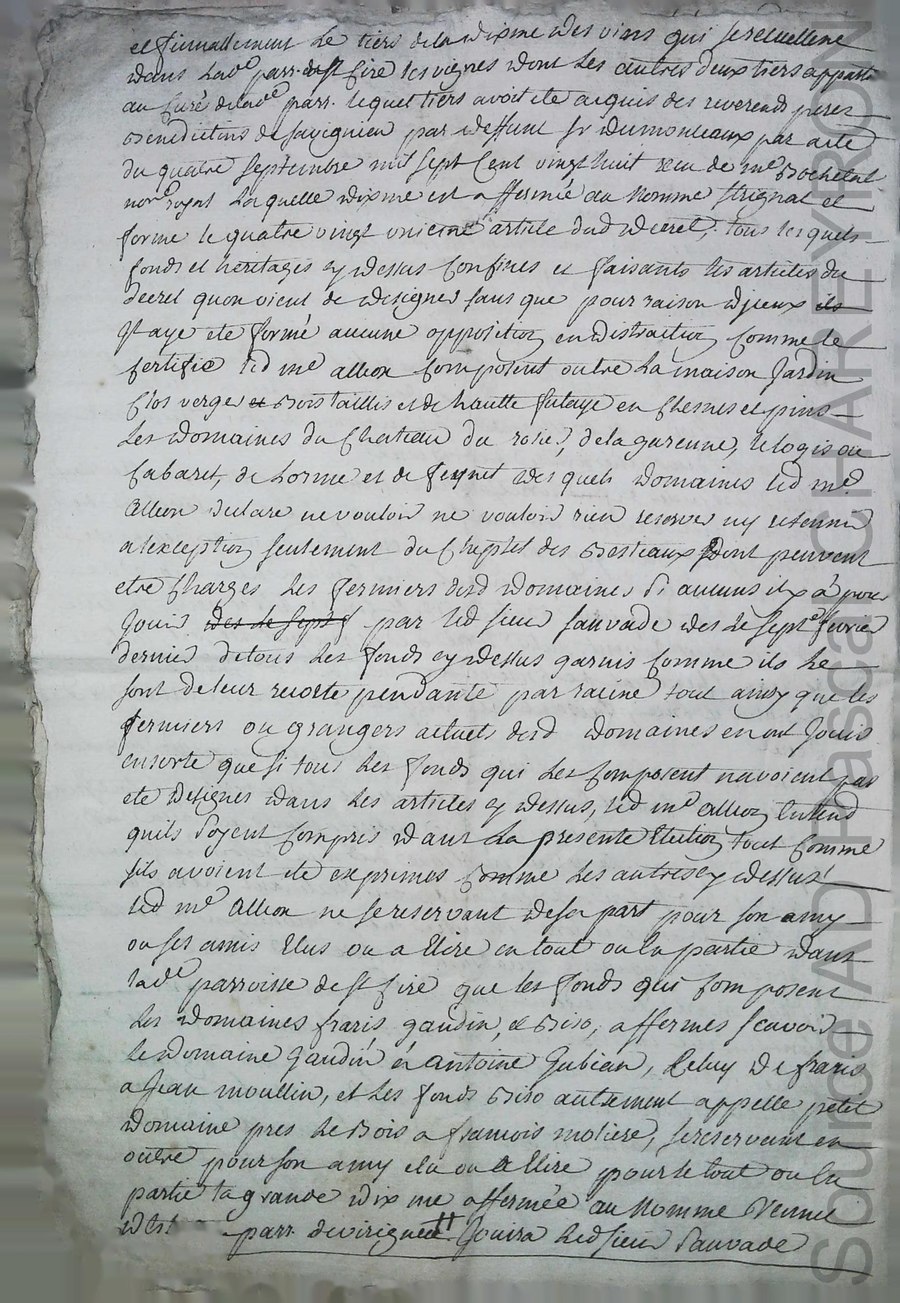 et finnallement le tiers de la dixme des vins qui se recuellene
dans lad^e parr. de st Cire les vignes dont les autres deux tiers appart
au Curé de lad^e parr. lequel tiers avoit ete acquis des reverends peres
Benedictins de Savignieu par deffunt sr Dumonteaux par acte
du quatre septembre mil sept Cent vingt huit recu de m^e Bochetal
nor^e royal laquelle dixme est affermée au nomme et
forme le quatre vingt onieme article dud decret, tous lesquels
fonds et heritages cy dessus Confines et faisants les articles du
decret quon vient de designer sans que pour raison djceux ils
jl aye ete formé aucune opposition en distraction Comme le
Certifie led m^e alleon Composent outre la maison Jardin
Clos verger et Bois taillis et de haute futaye en Chesnes et pins
les domaines du Chateau du rosier, de la garenne, le logis ou
Cabaret, de Lorme et de feynet des quels domaines led m^e
alleon declare ne vouloir ne vouloir rien reserver ny retenir
a lexception seulement du Cheptel des Bestiaux dont peuvent
etre Charges les fermiers desd domaines si aucuns il y a pour
Jouir des le sept^e par led sieur Sauvade des le sept^e fevrier
dernier de tous les fonds cy dessus garnis Comme ils le
sont de leur recorte pendante par racine tout ainsy que les
fermiers ou grangers actuels desd domaines en ont Jouis
ensorte que si tous les fonds qui les Composent navoient pas
ete designes dans les articles cy dessus, led m^e alleon entend
quils soyent Compris dans la presente Election tout Comme
sils avoient ete exprimes Comme les autres cy dessus
led m^e alleon ne se reservant de sa part pour son amy
ou ses amis Elus ou a Elire en tout ou en partie dans
lad^e parroisse de st Cire que les fonds qui Composent
les domaines fraris gaudin, et Biso, affermes scavoir
le domaine gaudin a antoine Jubian, Celuy de fraris
a Jean moullin, et les fonds Biso autrement appelle petit
domaine pres le Bois a francois moliere, se reservant en
outre pour son amy elu ou a Elire pour le tout ou en
partie la grande dixme affermée au nomme
parr. de virigneu Jouira led sieur Sauvade
Source AD Pascal CHAREYRON